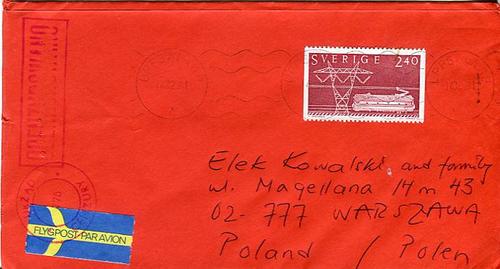 OCENZUROWANO
SVERIGE 240
FLYGPOST PAR AVION
Elek Kowalski and family
ul. Magellana 14 m 43
02-777 WARSZAWA
Poland / Polen